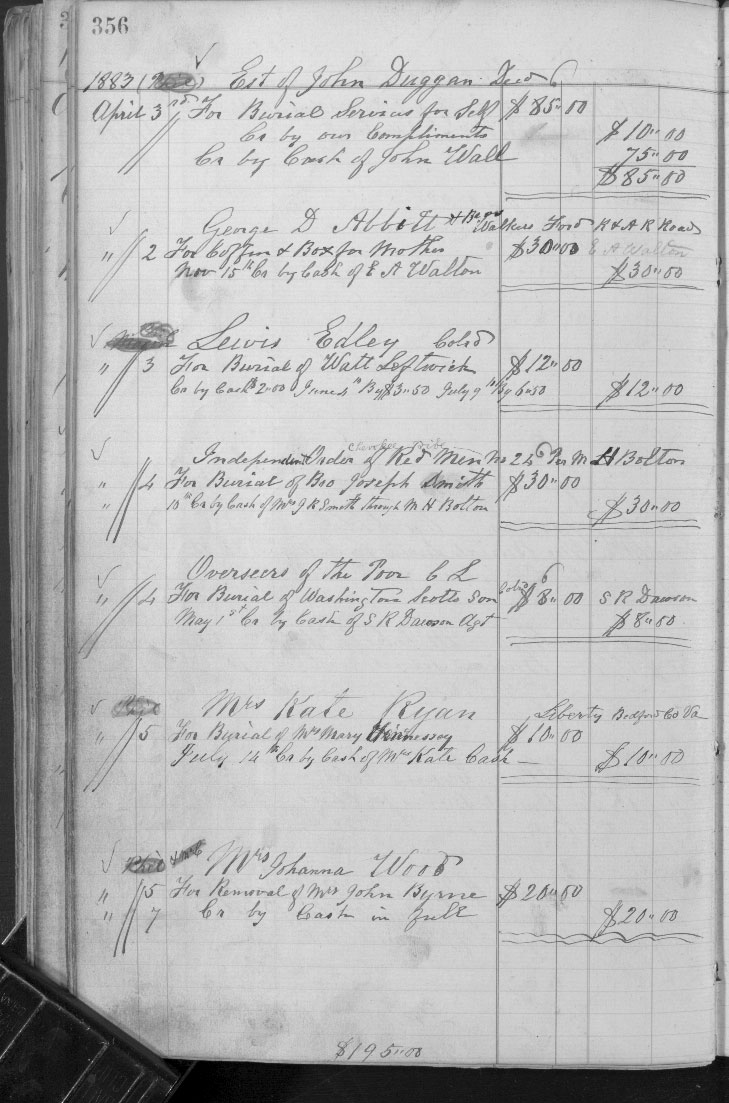 356
1883 Est of John Duggan Decd
April 3rd For Burial Services for Self $85"00
Cr by our Compliments $10"00
Cr by Cash of John Wall 75"00
$85"00
George D Abbitt Walkers Ford R & A R Road
" 2 For Coffin & Box for Mother $30"00 E A Walton
Nov 15th Cr by Cash of E A Walton $30"00
Lewis Edley Cold
" 3 For Burial of Watt Leftwich $12"00
Cr by Cash 2"00 June 4th By $3"50 July 9th By 6"50 $12"00
Cherokee Tribe
Independent Order of Red Men No 26 Per M H Bolton
" 4 For Burial of Bro Joseph Smith $30"00
" 10th Cr by Cash of Mrs J R Smith through M H Bolton $30"00
Overseers of the Poor C L
" 4 For Burial of Washington Scotts Son Cold $8"00 S R Dawson
May 1st Cr by Cash of S R Dawson Agt $8"00
Mrs Kate Ryan Liberty Bedford Co Va
" 5 For Burial of Mrs Mary Hennessey $10"00
July 14th Cr by Cash of Mrs Kate Cash $10"00
Mrs Johanna Wood
" 5 For Removal of Mrs John Byrne $20"00
" 7 Cr by Cash in full $20"00
$195"00